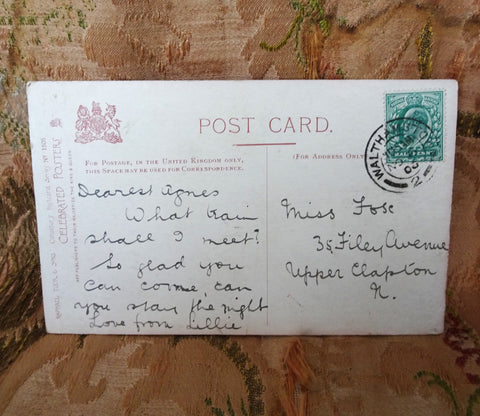 POST CARD.
FOR POSTAGE, IN THE UNITED KINGDOM ONLY,
THIS SPACE MAY BE USED FOR CORRESPONDENCE.
(FOR ADDRESS ONLY
CELEBRATED POSTERS
Dearest Agnes
What train
shall I meet?
So glad you
can come, can
you stay the night
Love from Lillie
Miss Fose
35 Filey Avenue
Upper Clapton
N.
HALF PENNY
WALTHA
2